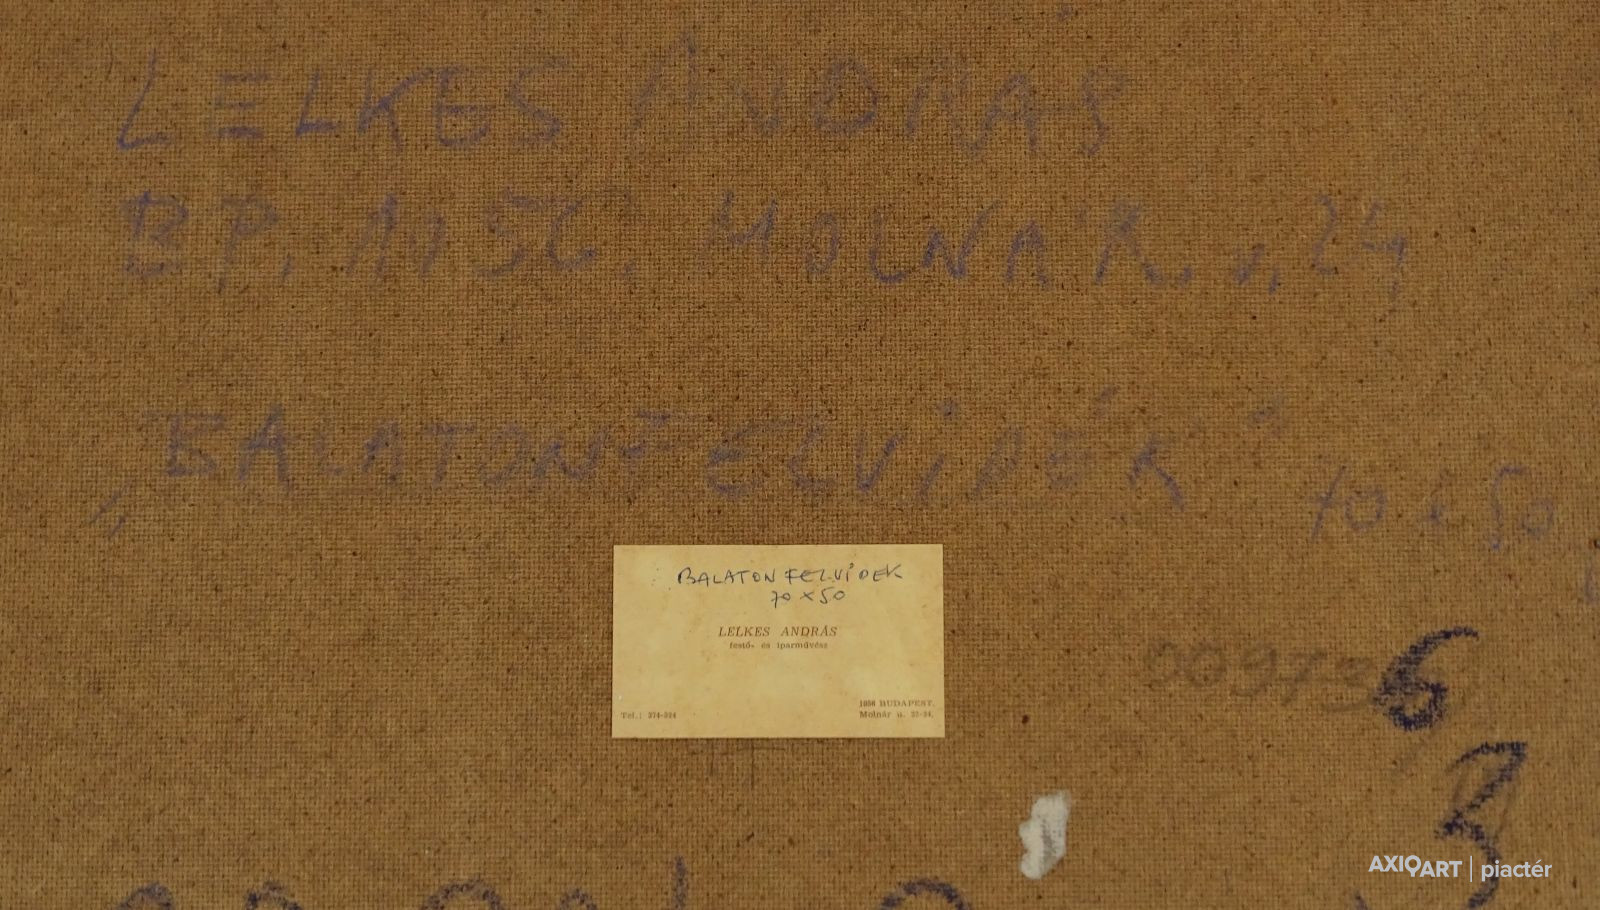 LELKES ANDRÁS
BP, 1056, MOLNÁR. u. 24
„BALATONFELVIDÉK" 70 x 50
BALATON FELVIDEK
70 x 50
LELKES ANDRÁS
festő- és iparművész
1056 BUDAPEST,
Tel.: 374-324 Molnár u. 22-24.
00973
6
3
AXIOART | piactér